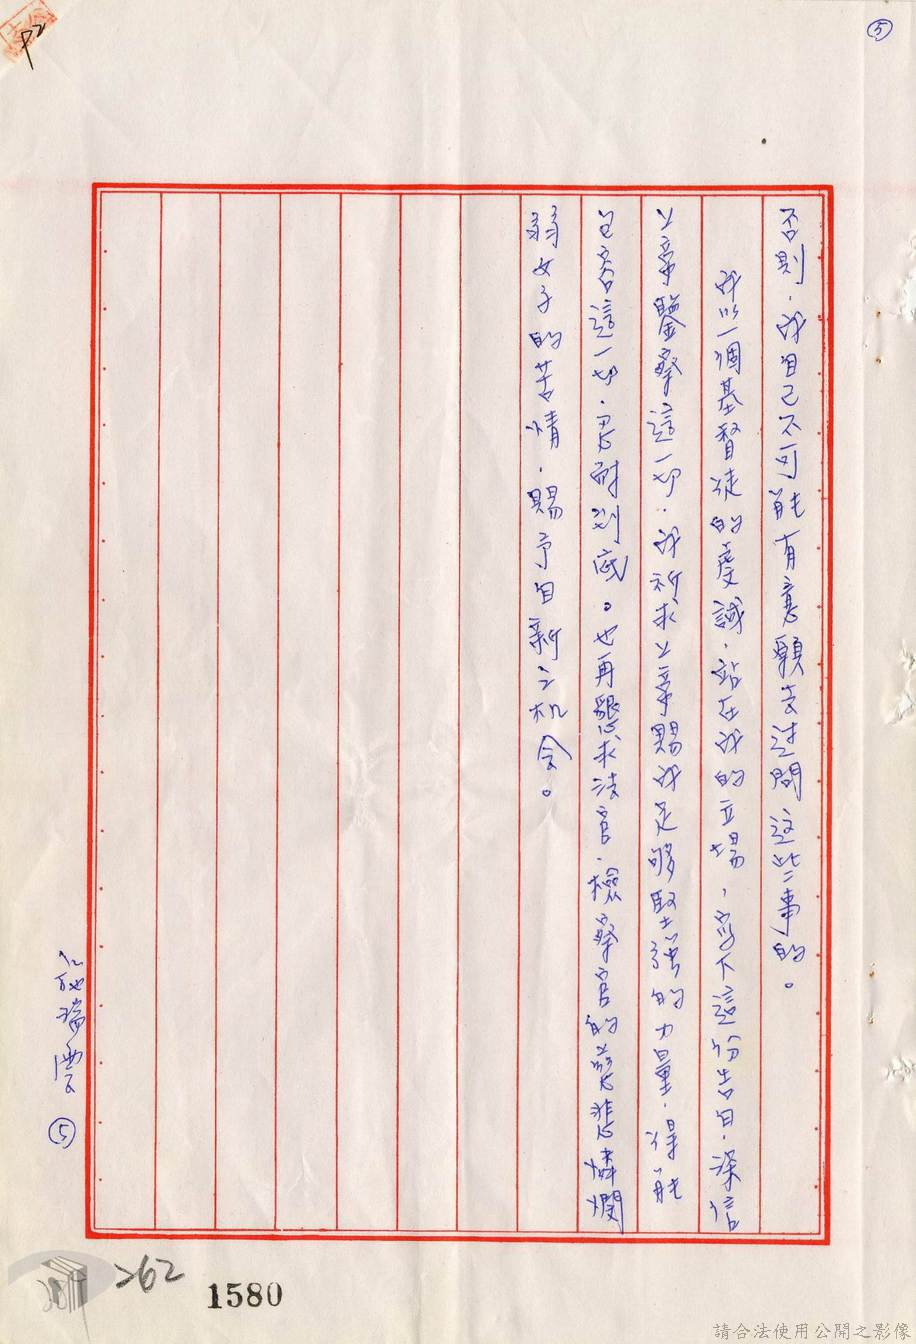 ⑤
P2
否則，我自己不可能有意願去过問这些事的。
我以一個基督徒的虔誠，站在我的立場，寫下這份告白，深信
上帝鑒察這一切，我祈求上帝賜我足够堅强的力量，得能
包容這一切，忍耐到底。也再懇求法官、檢察官的慈悲憐憫
弱女子的苦情，賜予自新之机会。
施瑞雲
⑤
262
1580
請合法使用公開之影像